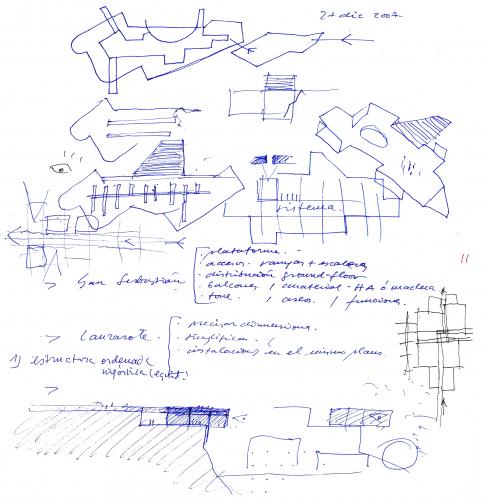 27 dic 2007
sistema.
plataforma. -
. accesos. rampas + escaleras
. distribución ground-floor
San Sebastián
. balcones / material - HA ó madera
. / aseos. / funciones.
> Lanzarote.
. precisar dimensiones.
. simplificar. (
. instalaciones en el mismo plano.
1) estructura ordenada
11
>